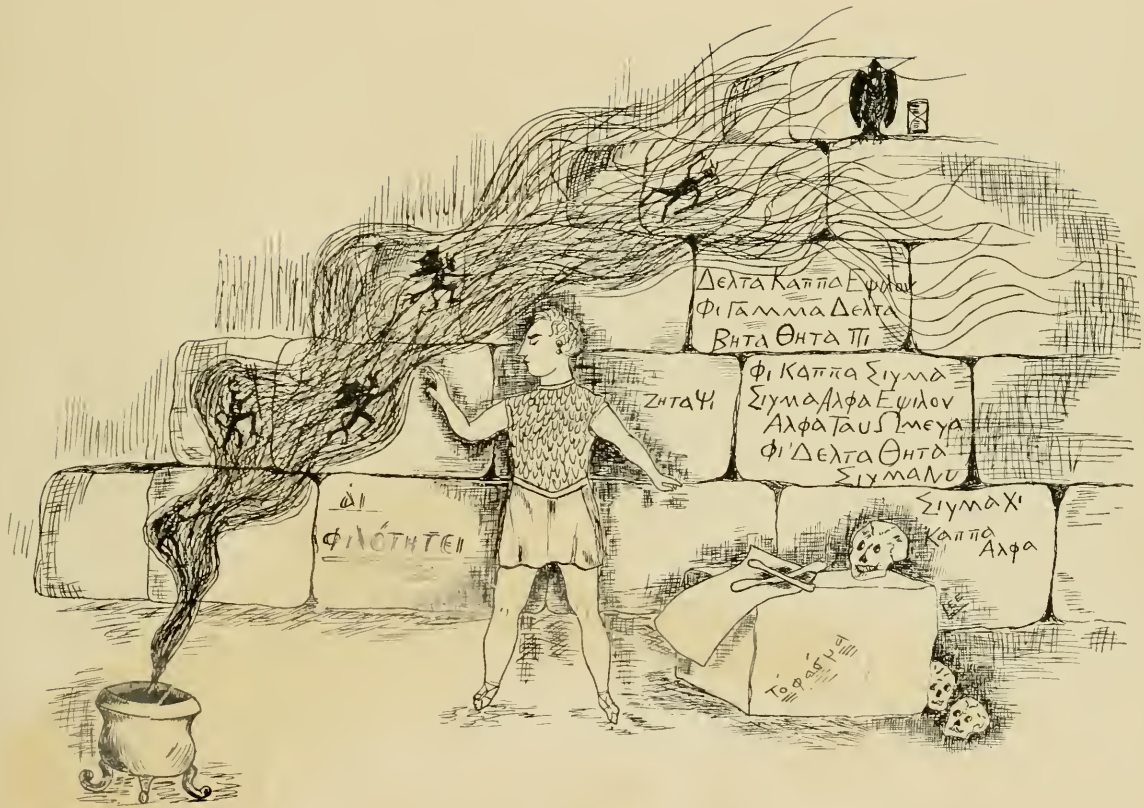 Δελτα Καππα Εψιλον
Φι Γαμμα Δελτα
Βητα Θητα Πι
Ζητα Ψι
Φι Καππα Σιγμα
Σιγμα Αλφα Εψιλον
Αλφα Ταυ Ωμεγα
Φι Δελτα Θητα
Σιγμα Νυ
Σιγμα Χι
Καππα
Αλφα
ἁι
φιλότητει